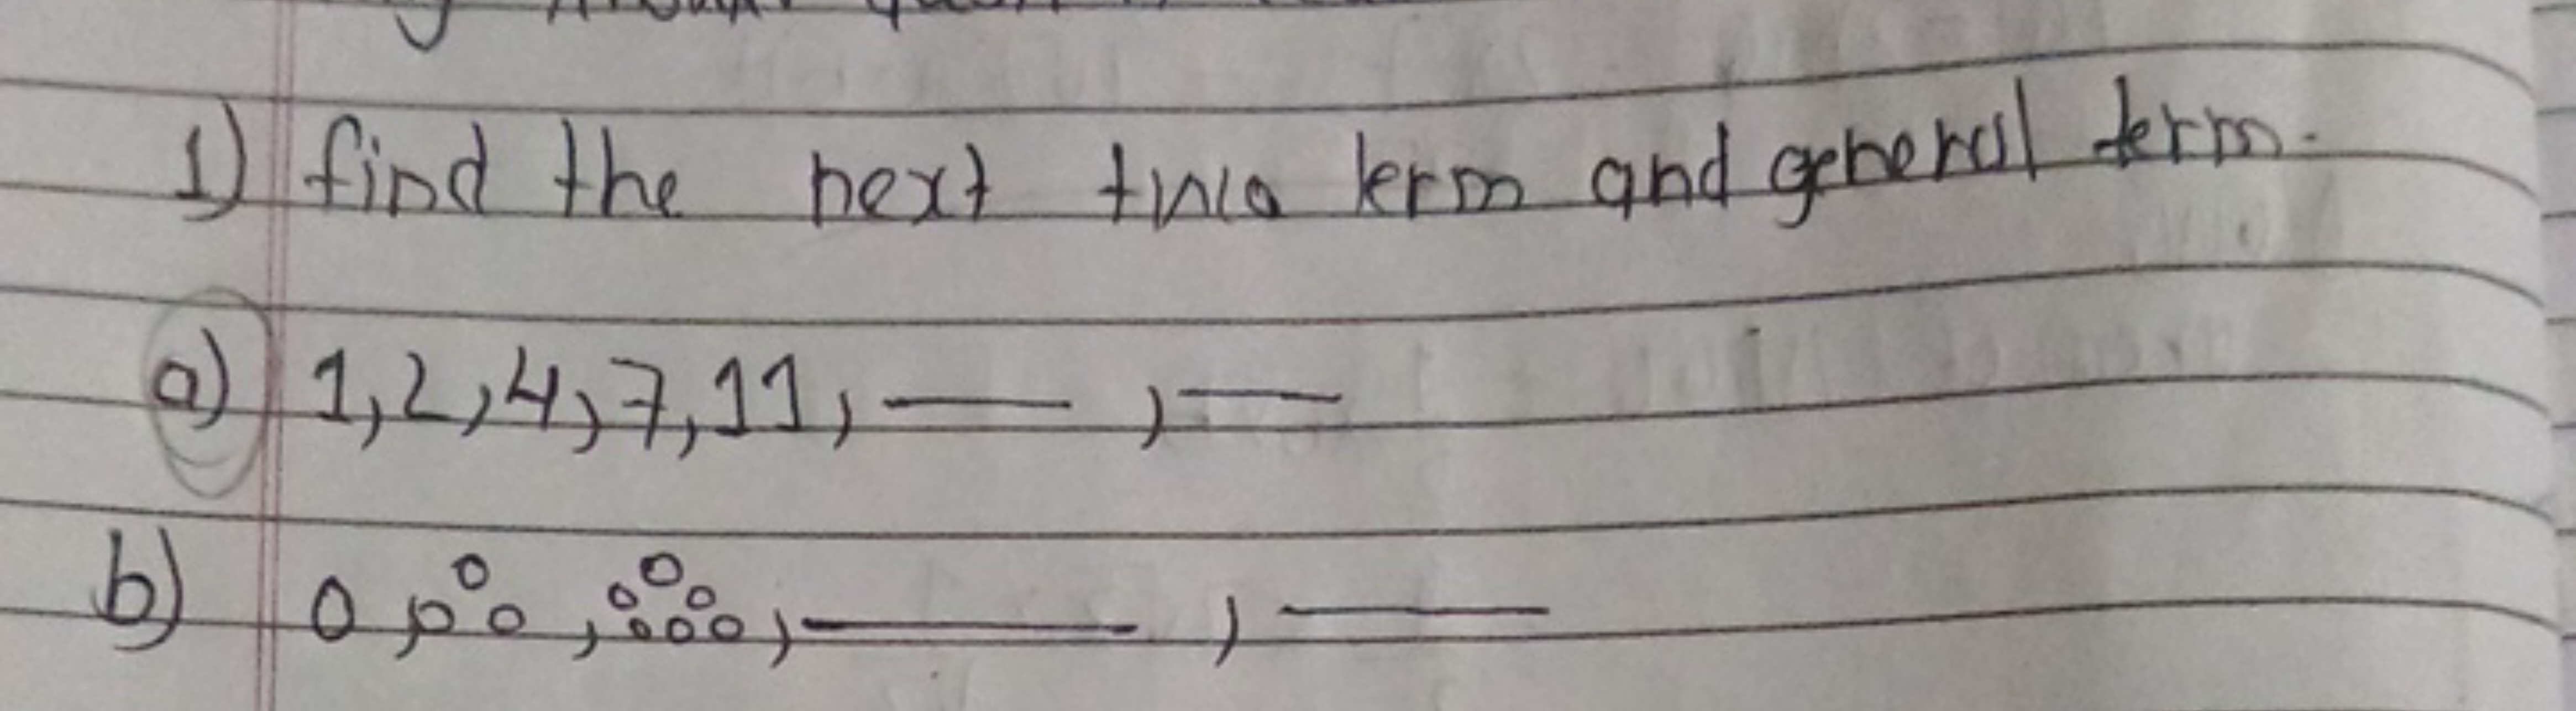 1) find the next two term and general term.
a) 1,2,4,7,11, — , —
b) o, ooo, oooooo, — , —